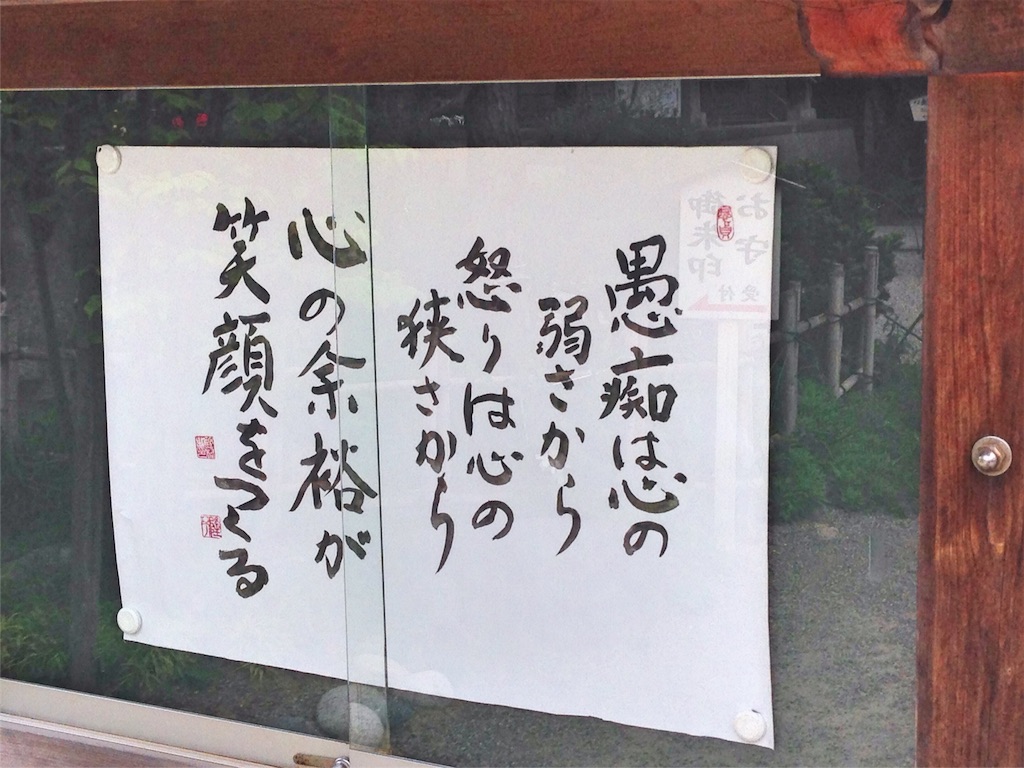 愚痴は心の
弱さから
怒りは心の
狭さから
心の余裕が
笑顔をつくる
お守
御朱印
受付